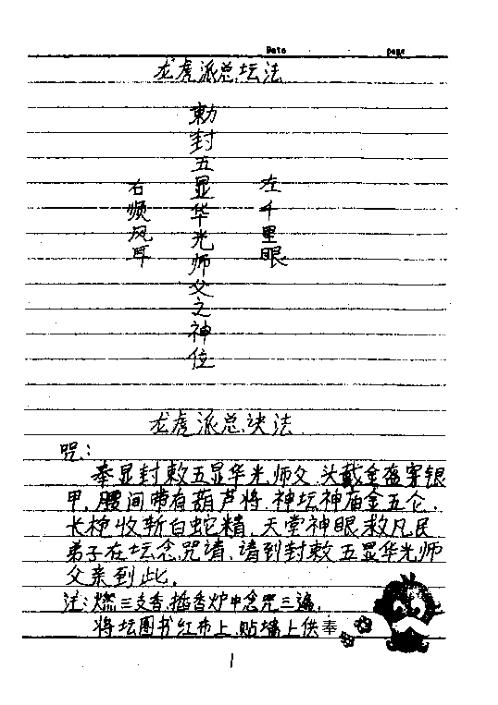 Date page
龙虎派总坛法
敕封五显华光师父之神位
左千里眼
右顺风耳
龙虎派总决法
咒：
奉显封敕五显华光师父，头戴金盔穿银
甲，腰间带有葫芦将，神坛神庙金五仑，
长枪收斩白蛇精，天堂神眼救凡民
弟子在坛念咒请，请到封敕五显华光师
父亲到此。
注：燃三支香，插香炉中念咒三遍，
将坛图书红布上，贴墙上供奉
1